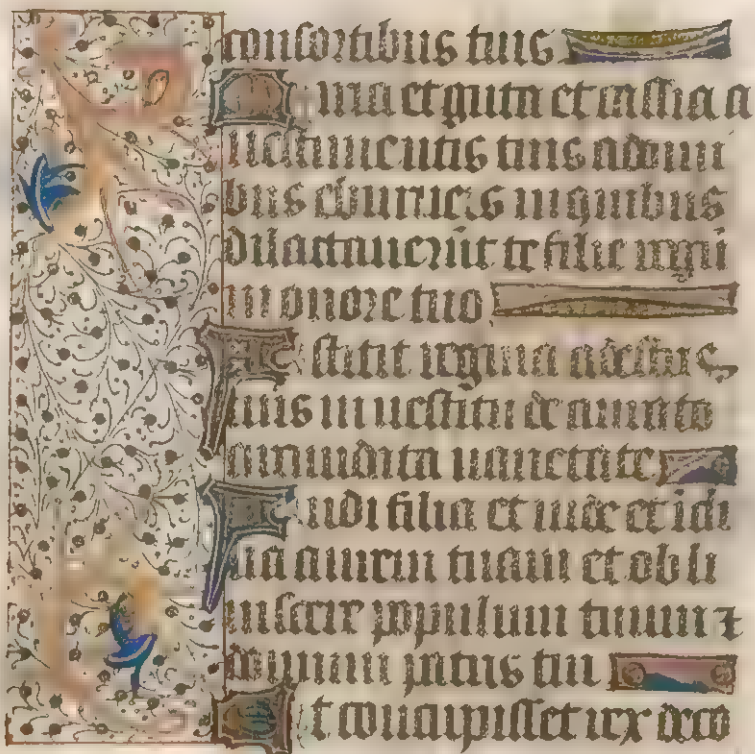 consortibus tuis
Mirra et guta et cassia a
uestimentis tuis a domi
bus eburneis in quibus
dilactauerūt te filie regū
in honore tuo
Astitit regina a dextris
tuis in uestitu de aurato
circumdata uarietate
Audi filia et uide et icli
na aurem tuam et obli
uiscere populum tuum ⁊
domum patris tui
Et concupisset rex deco